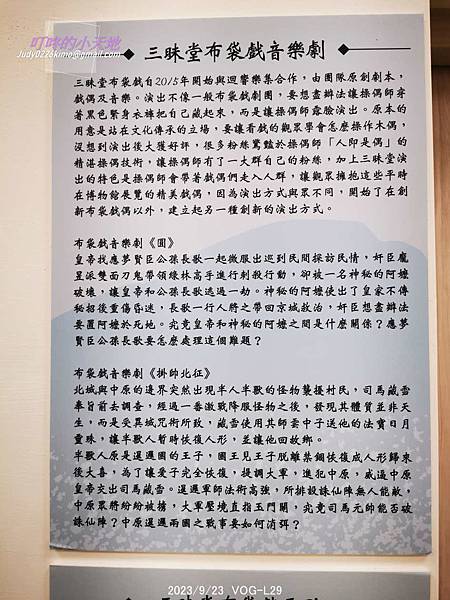 叮咚的小天地
Judy0226kimo@gmail.com
三昧堂布袋戲音樂劇
三昧堂布袋戲自2015年開始與迴響樂集合作，由團隊原創劇本，
戲偶及音樂。演出不像一般布袋戲劇團，要想盡辦法讓操偶師穿
著黑色緊身衣褲把自己藏起來，而是讓操偶師露臉演出。原本的
用意是站在文化傳承的立場，要讓看戲的觀眾學會怎麼操作木偶，
沒想到演出後大獲好評，很多粉絲驚豔於操偶師「人即是偶」的
精湛操偶技術，讓操偶師有了一大群自己的粉絲，加上三昧堂演
出的特色是操偶師會帶著戲偶們走入人群，讓觀眾擁抱這些平時
在博物館展覽的精美戲偶，因為演出方式與眾不同，開始了在創
新布袋戲偶以外，建立起另一種創新的演出方式。
布袋戲音樂劇《圓》
皇帝找應夢賢臣公孫長歌一起微服出巡到民間探訪民情，奸臣龐
星派雙面刀鬼帶領綠林高手進行刺殺行動，卻被一名神秘的阿嬤
破壞，讓皇帝和公孫長歌逃過一劫。神秘的阿嬤使出了皇家不傳
秘招後重傷昏迷，長歌一行人將之帶回京城救治，奸臣想盡辦法
要置阿嬤於死地。究竟皇帝和神秘的阿嬤之間是什麼關係？應夢
賢臣公孫長歌要怎麼處理這個難題？
布袋戲音樂劇《掛帥北征》
北城與中原的邊界突然出現半人半獸的怪物襲擾村民，司馬藏雪
奉旨前去調查，經過一番激戰降服怪物之後，發現其體質並非天
生，而是受異域咒術所致，藏雪使用其師妻中子送他的法寶日月
靈珠，讓半獸人暫時恢復人形，並讓他回故鄉。
半獸人原是暹邏國的王子，國王見王子脫離禁錮恢復成人形歸來
後大喜，為了讓愛子完全恢復，提調大軍，進犯中原，威逼中原
皇帝交出司馬藏雪。暹邏軍師法術高強，所排設誅仙陣無人能敵，
中原眾將紛紛被擒，大軍壓境直指玉門關，究竟司馬元帥能否破
誅仙陣？中原暹邏兩國之戰事要如何消弭？
2023/9/23 VOG-L29